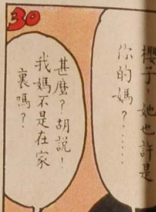 30
櫻子，她也許是
你的媽？……
甚麼？胡說，
我媽不是在家
裏嗎？